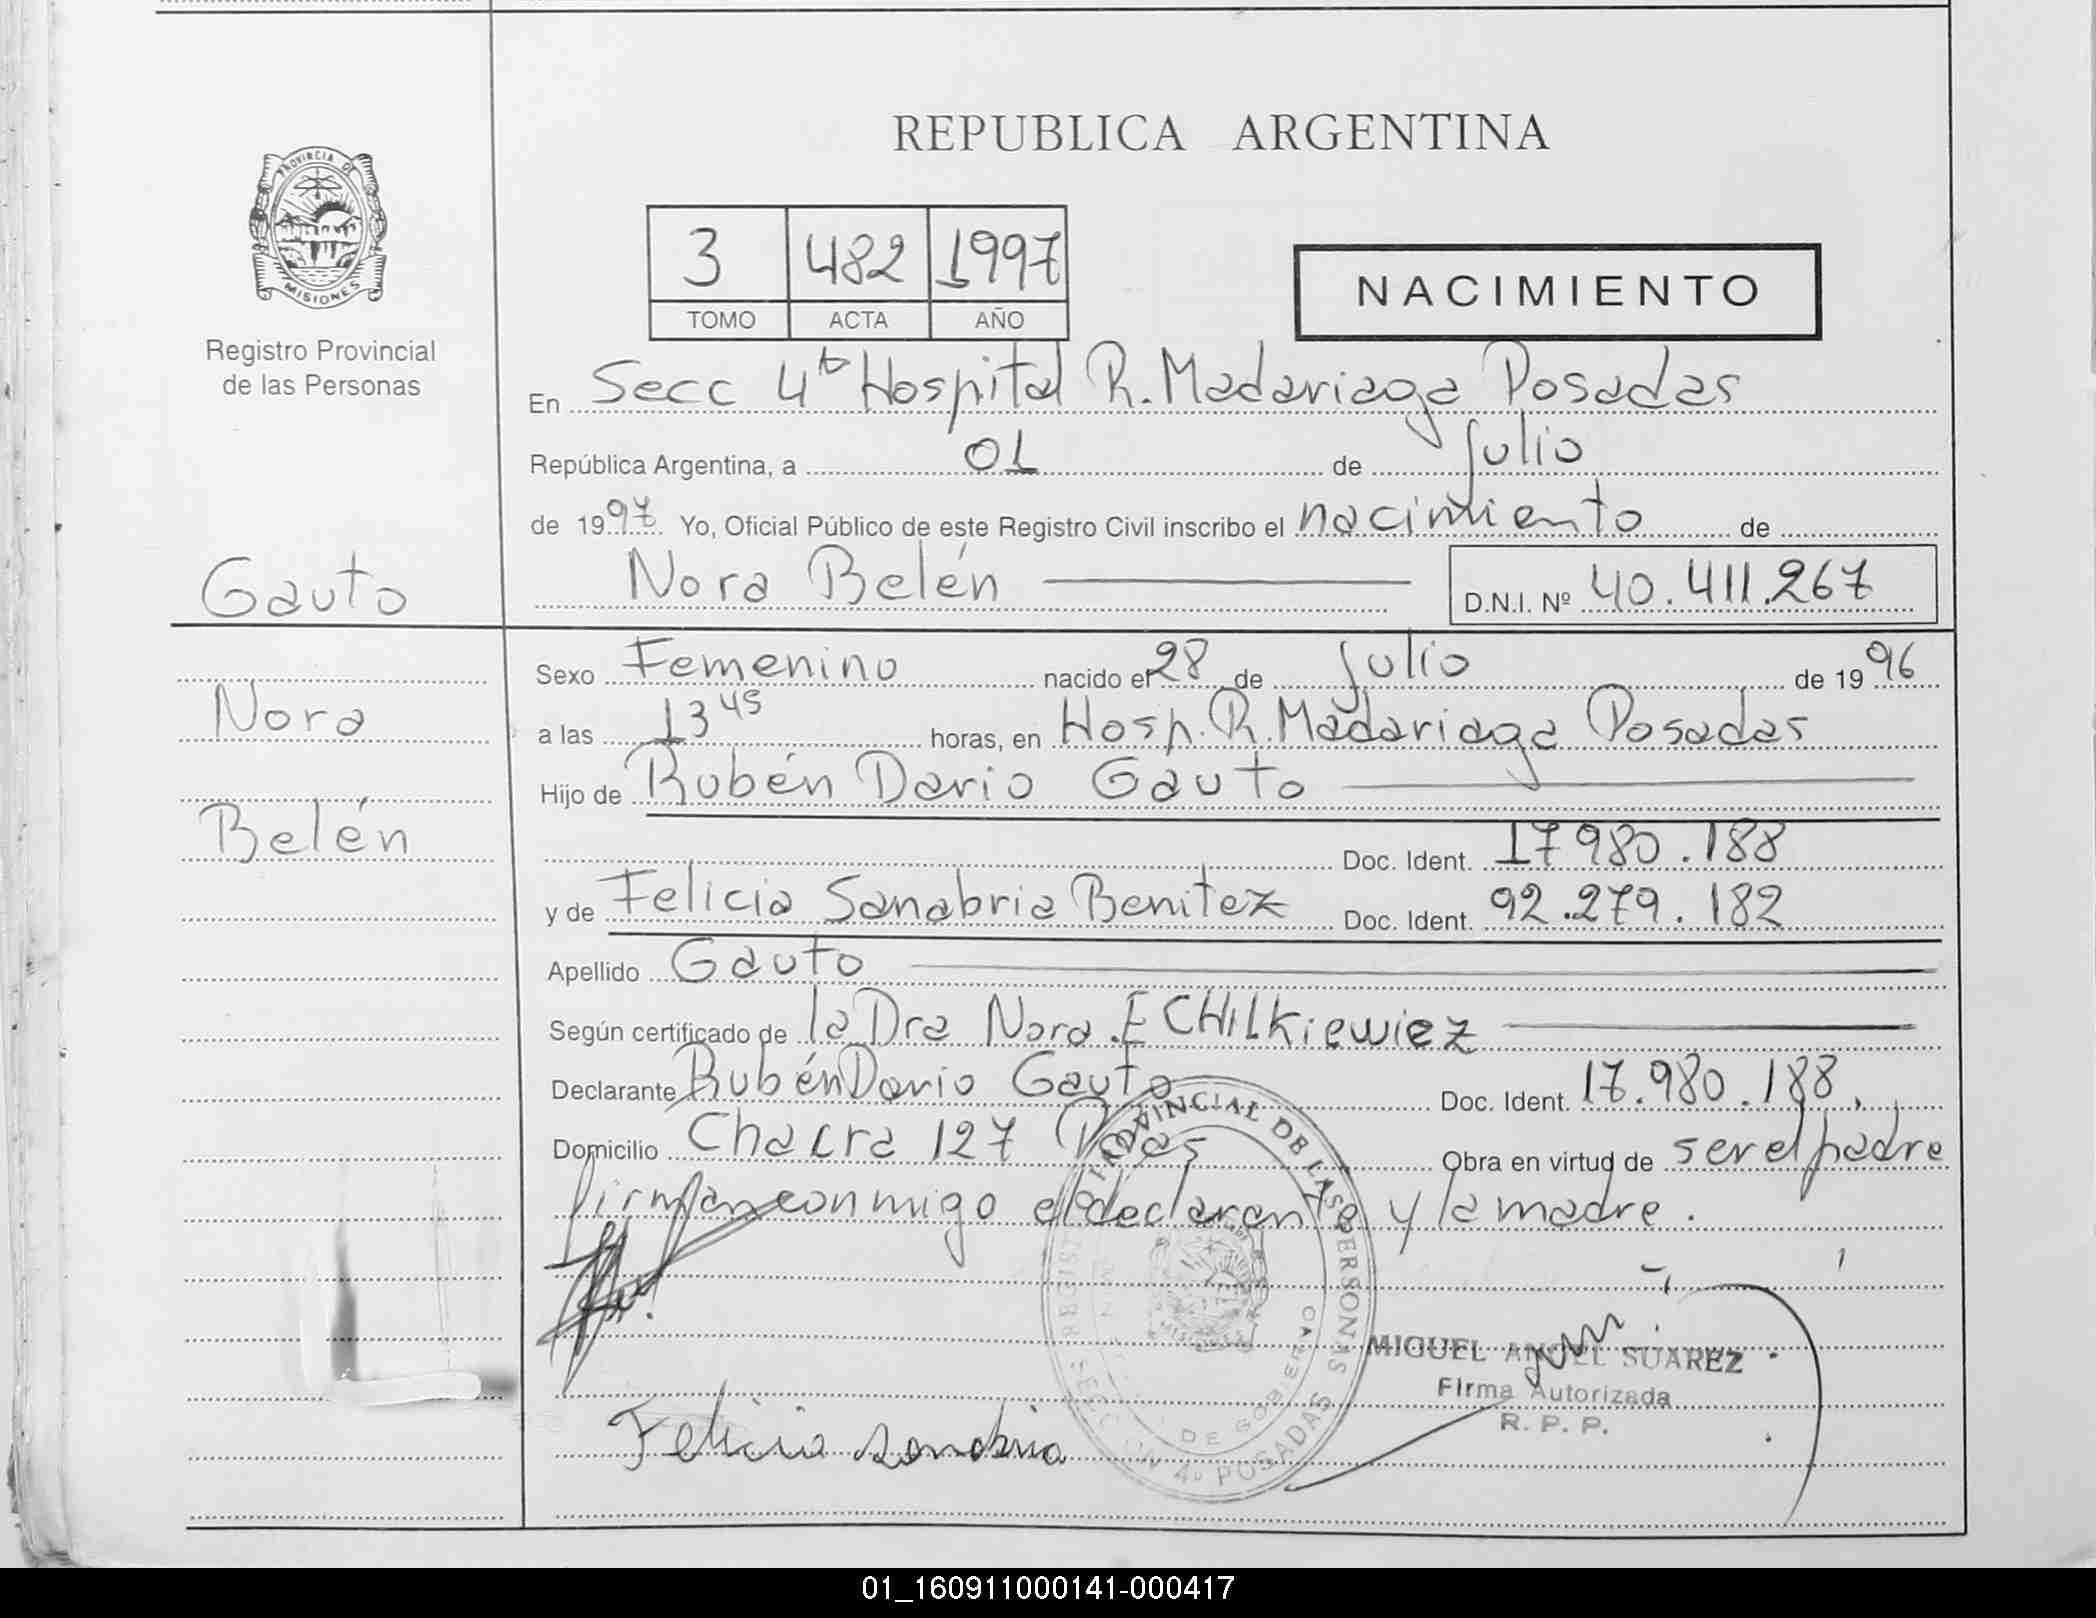 PROVINCIA DE
MISIONES
Registro Provincial
de las Personas
Gauto
Nora
Belén
REPUBLICA ARGENTINA
3 482 1997
TOMO ACTA AÑO
NACIMIENTO
En Secc 4ta Hospital R. Madariaga Posadas
República Argentina, a 01 de Julio
de 1997. Yo, Oficial Público de este Registro Civil inscribo el nacimiento de
Nora Belén D.N.I. Nº 40.411.267
Sexo Femenino nacido el 28 de Julio de 1996
a las 13 45 horas, en Hosp. R. Madariaga Posadas
Hijo de Rubén Dario Gauto
Doc. Ident. 17980.188
y de Felicia Sanabria Benitez Doc. Ident. 92.279.182
Apellido Gauto
Según certificado de la Dra Nora .E CHILKiewiez
Declarante Rubén Dario Gauto Doc. Ident. 17.980.188,
Domicilio Chacra 127 Pdas Obra en virtud de ser el padre
firman conmigo el declarante y la madre.
REGISTRO PROVINCIAL DE LAS PERSONAS
DE GOBIERNO
SECCION 4º POSADAS
MISIONES
MIGUEL ANGEL SUAREZ
Firma Autorizada
R. P. P.
Felicia Sanabria
01_160911000141-000417